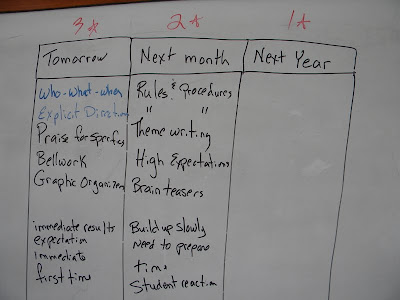 3☆ 2☆ 1☆
Tomorrow Next month Next Year
Who-what-when
Explicit Directions
Praise for Specifics
Bellwork
Graphic Organizers
immediate results
expectation
immediate
first time
Rules & Procedures
" "
Theme writing
High Expectations
Brain teasers
Build up slowly
Need to prepare
time
Student reaction